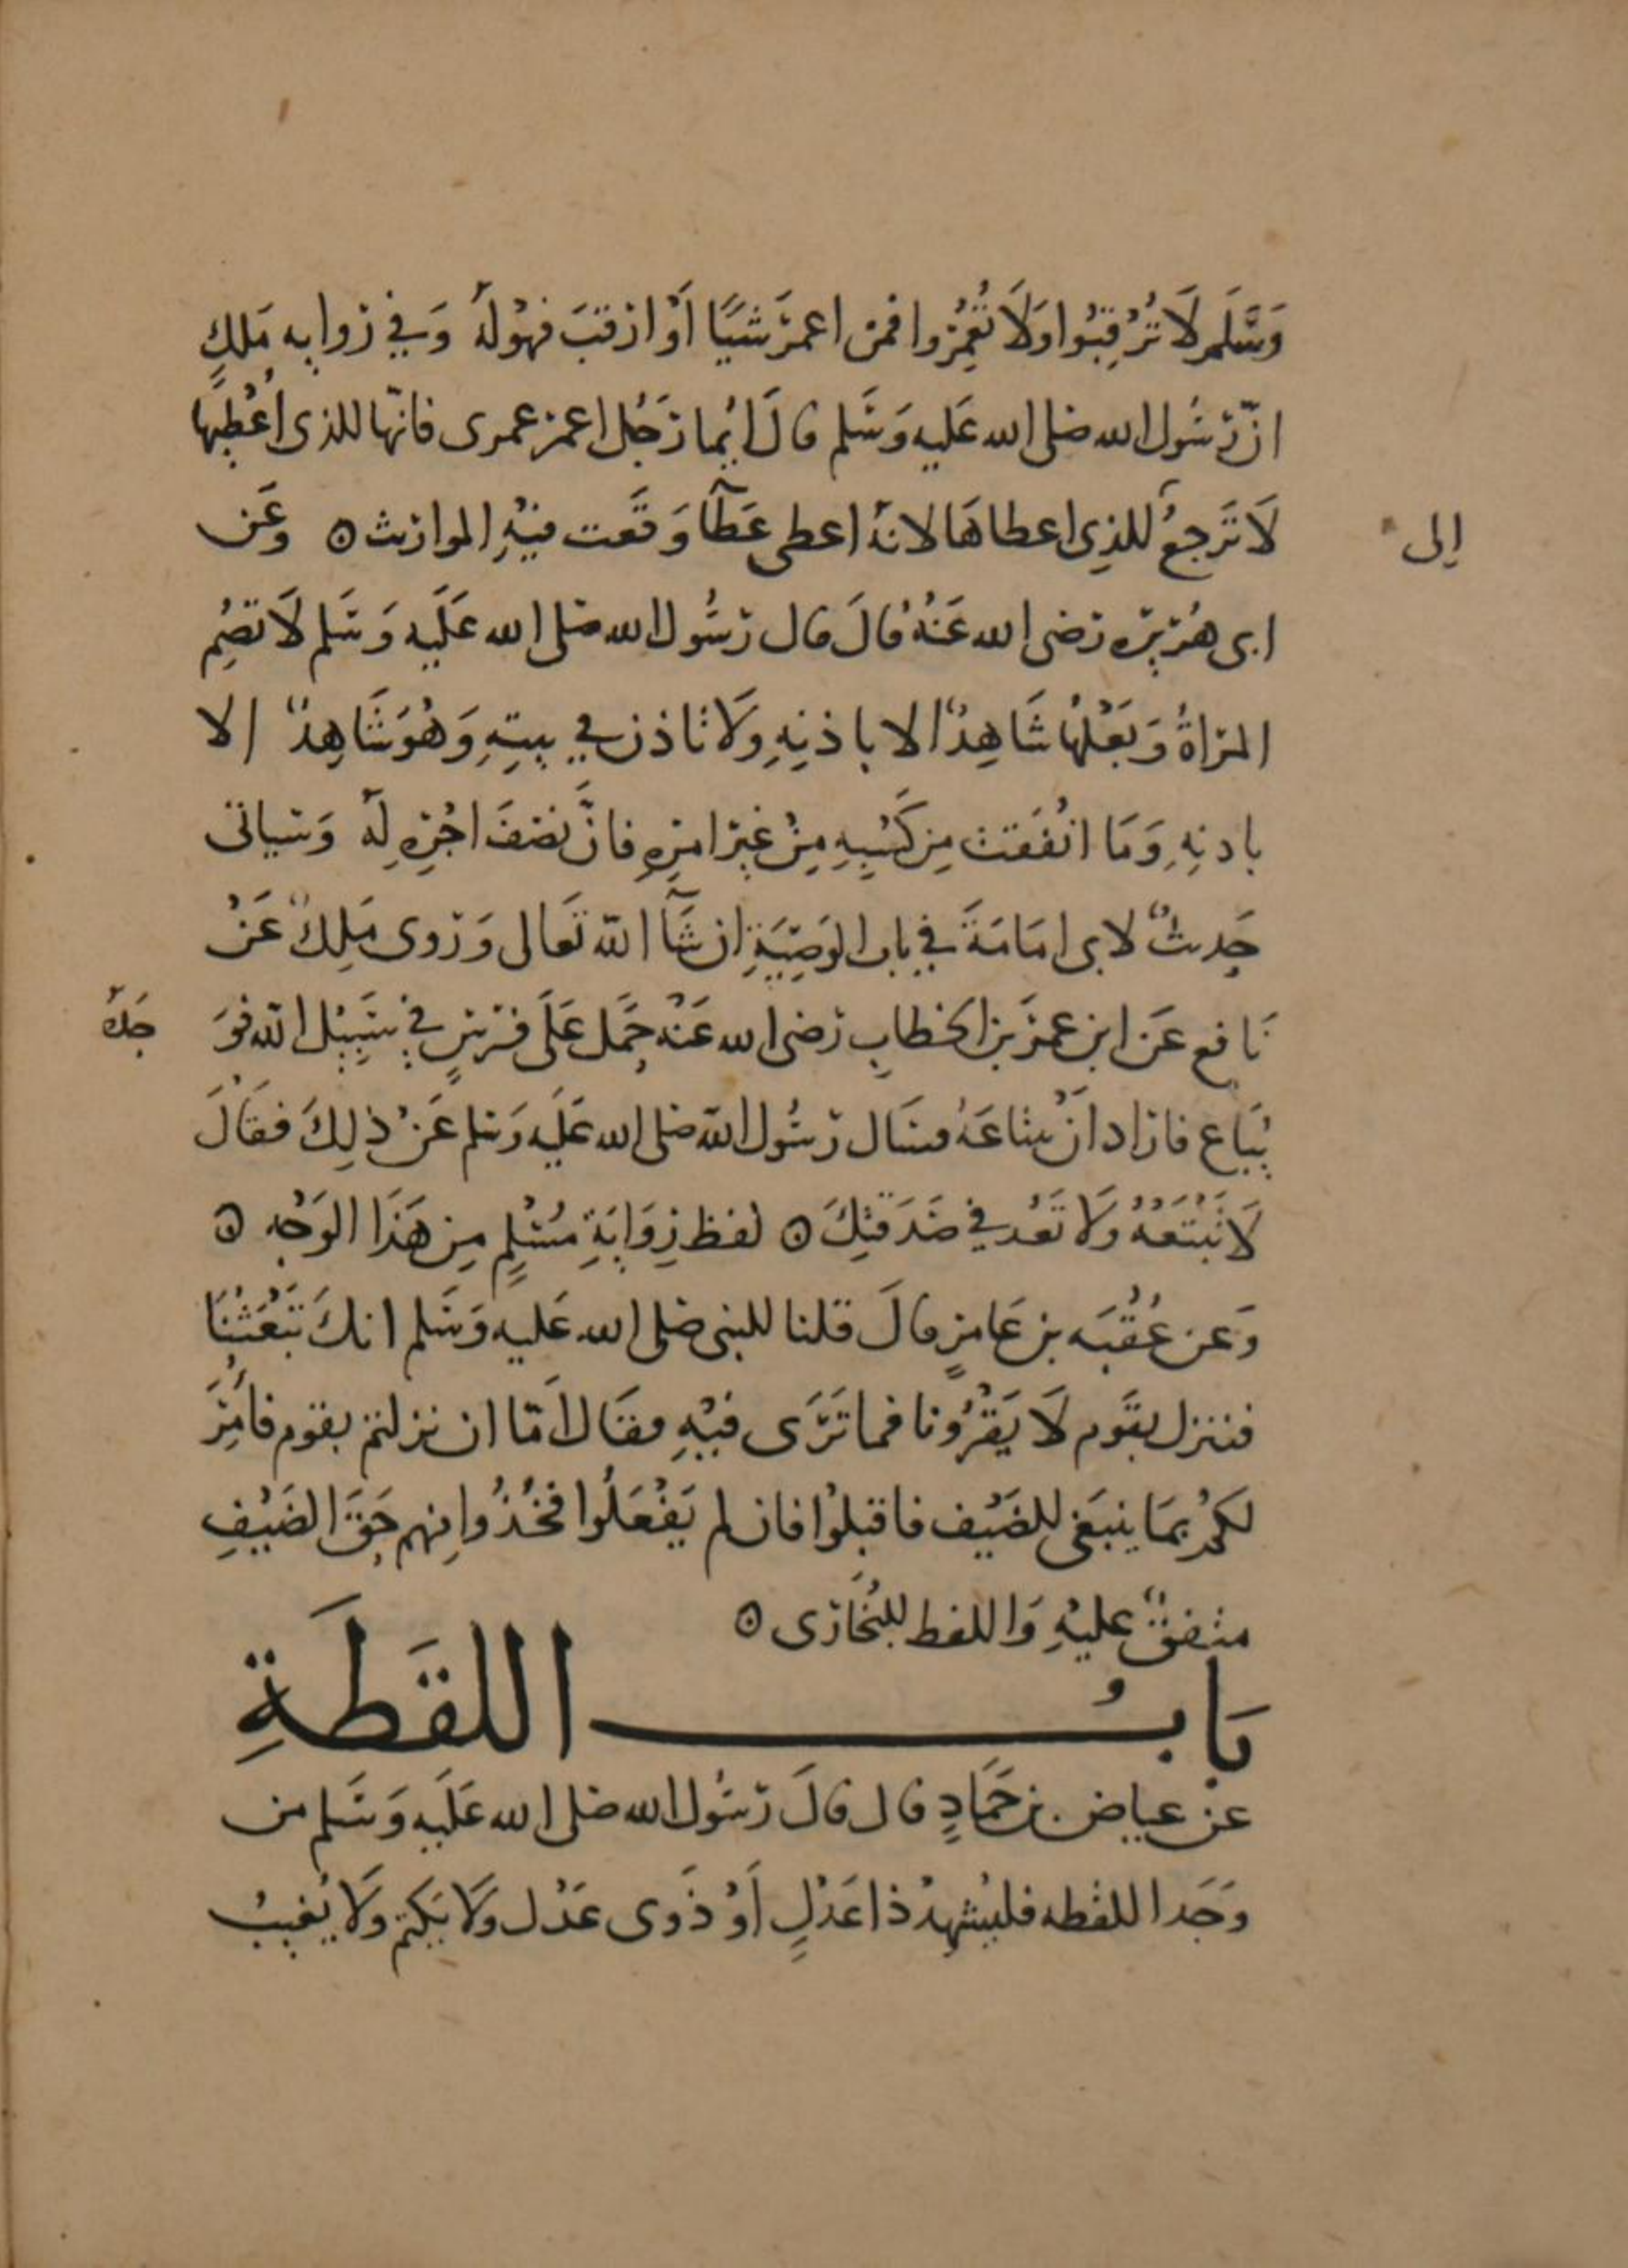 وَسَّلَم لَا تُرْقِبُوا وَلَا تُعْمِرُوا فمن اعمرَ شَيًا أَوْ ارقبَ فهْوَ لَهُ وَفي روايه مَلكٍ
انّ رسُول الله صلى الله عَليه وَسَلم قالَ ايُما رَجُل اعمر عمرى فانّها للذى اُعْطِيهَا
لَا تَرجعُ للذِي اعطاهَا لانهُ اعطى عَطآ وَقَعت فيْهِ المواريث ۞ وعَن
إلى
ابى هُرَيره رَضى الله عَنهُ قالَ قال رسُول الله صَلى الله عَلَيه وَسَلم لَا تصُمِ
المرَاةُ وَبَعْلُهَا شَاهِدٌ الا باذنِهِ وَلَا تاذن في بيتِهِ وَهُوَ شَاهِدٌ الا
بادنِهِ وَمَا انْفَقت مِن كَسْبِهِ مِنْ غير امرِهِ فانَّ نصْفَ اجْرِهِ لَهُ وَسياتى
حَدِيثٌ لابى امَامَةَ في باب الوَصِيَّةِ ان شَآ اللّه تَعَالى وَرَوى مَلِكٌ عَنْ
نَافع عَن ابن عمرَ بن الخطابِ رَضى الله عَنْهُ حَمَل عَلَى فرَسٍ في سَبِيْل اللّه فوَ
جَدَهُ
يُبَاع فارَاد انْ يبتاعَهُ فسَال رسُول اللّه صَلى الله عَلَيه وَسَلم عَنْ ذلِكَ فقَالَ
لَا تَبْتَعْهُ وَلَا تَعُد في صَدَقتِكَ ۞ لفظ رِوَايَةِ مُسْلِمٍ مِن هَذَا الوَجْهِ ۞
وَعن عُقْبَه بن عَامرٍ قالَ قلنا للنبى صَلى الله عَليه وَسَلم انكَ تَبْعَثُنَا
فننزل بقَوم لَا يَقْرُونا فما تَرَى فيْهِ فقَال لَمّا ان نزلتم بقوم فأمُرَ
لكمْ بمَا ينبَغى للضَيْف فاقبلُوا فان لم يَفْعَلُوا فخُذُوا مِنهم حَقَّ الضَيْفِ
متفقٌ عليْهِ وَاللفظ للبُخَارى ۞
بَابُ اللقَطَةِ
عن عياض بن حَمَادٍ قال قالَ رسُول الله صَلى الله عَلَيه وَسَلم من
وَجَد اللقطه فليُشهِدْ ذا عَدْلٍ أَوْ ذَوى عَدْل وَلَا يَكتم وَلَا يُغيبْ